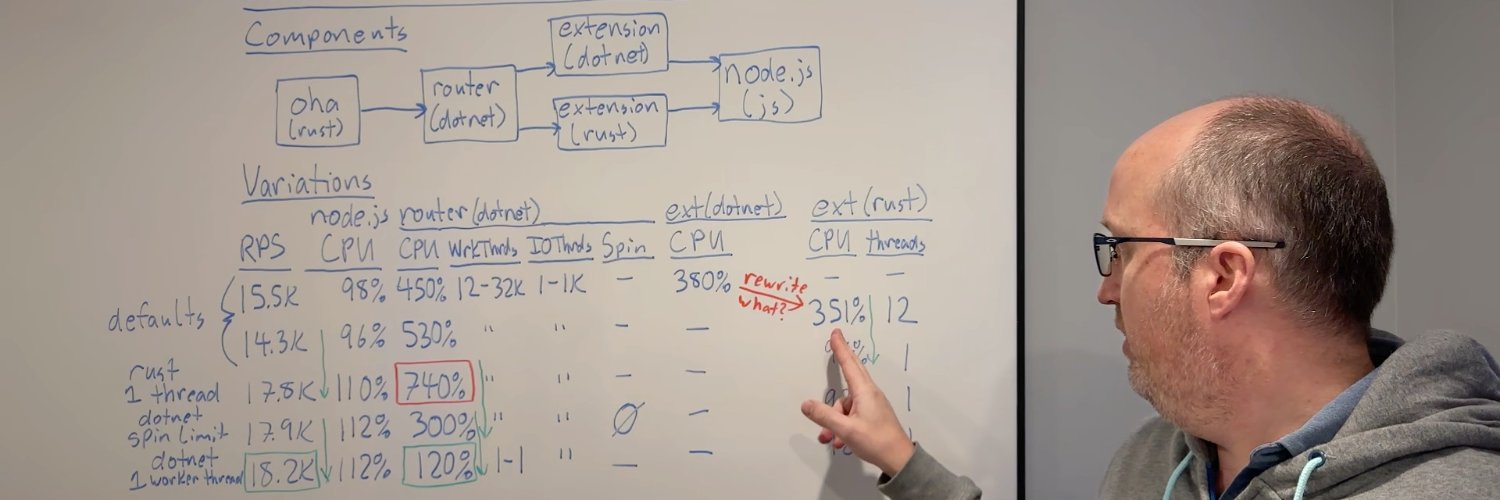 Components
oha
(rust)
router
(dotnet)
extension
(dotnet)
extension
(rust)
node.js
(js)
Variations
node.js router (dotnet) ext(dotnet) ext (rust)
RPS CPU CPU WrkThrds IOThrds Spin CPU CPU threads
defaults
15.5K 98% 450% 12-32K 1-1K - 380% - -
rewrite
what?
14.3K 96% 530% " " - - 351% 12
rust
1 thread 17.8K 110% 740% " " - - 1
dotnet
spin limit 17.9K 112% 300% " " Ø - 1
dotnet
1 worker thread 18.2K 112% 120% 1-1 " - -